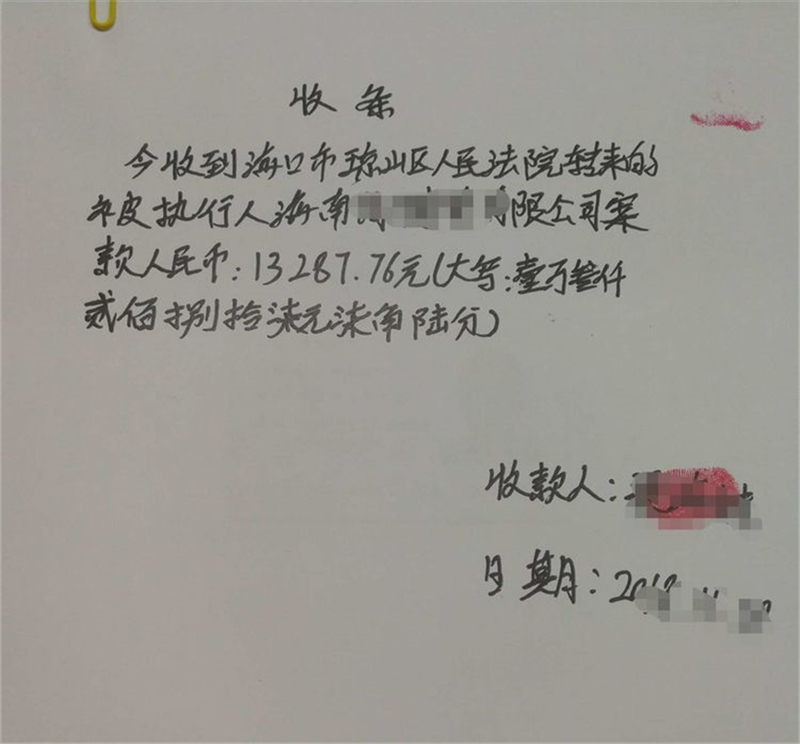 收条
今收到海口市琼山区人民法院转来的
被执行人海南 有限公司案
款人民币:13287.76元(大写:壹万叁仟
贰佰捌拾柒元柒角陆分)
收款人:
日期: